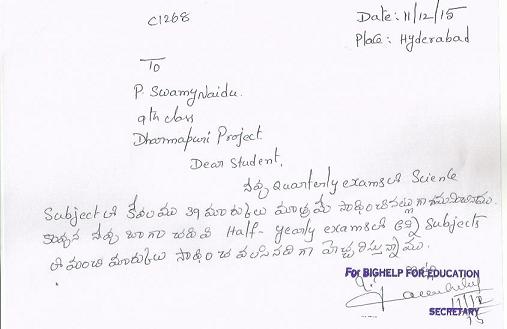 C1268
Date: 11/12/15
Place: Hyderabad
To
P. Swamy Naidu.
9th class
Dharmapuri Project.
Dear Student,
నీవు Quarterly exams లో Science
Subject లో కేవలము 39 మార్కులు మాత్రమే సాధించినట్లుగా గమనించినాము.
కావున నీవు బాగా చదివి Half-yearly exams లో అన్ని Subjects
లో మంచి మార్కులు సాధించ వలసినదిగా హెచ్చరిస్తున్నాము.
For BIGHELP FOR EDUCATION
11/12
15
SECRETARY